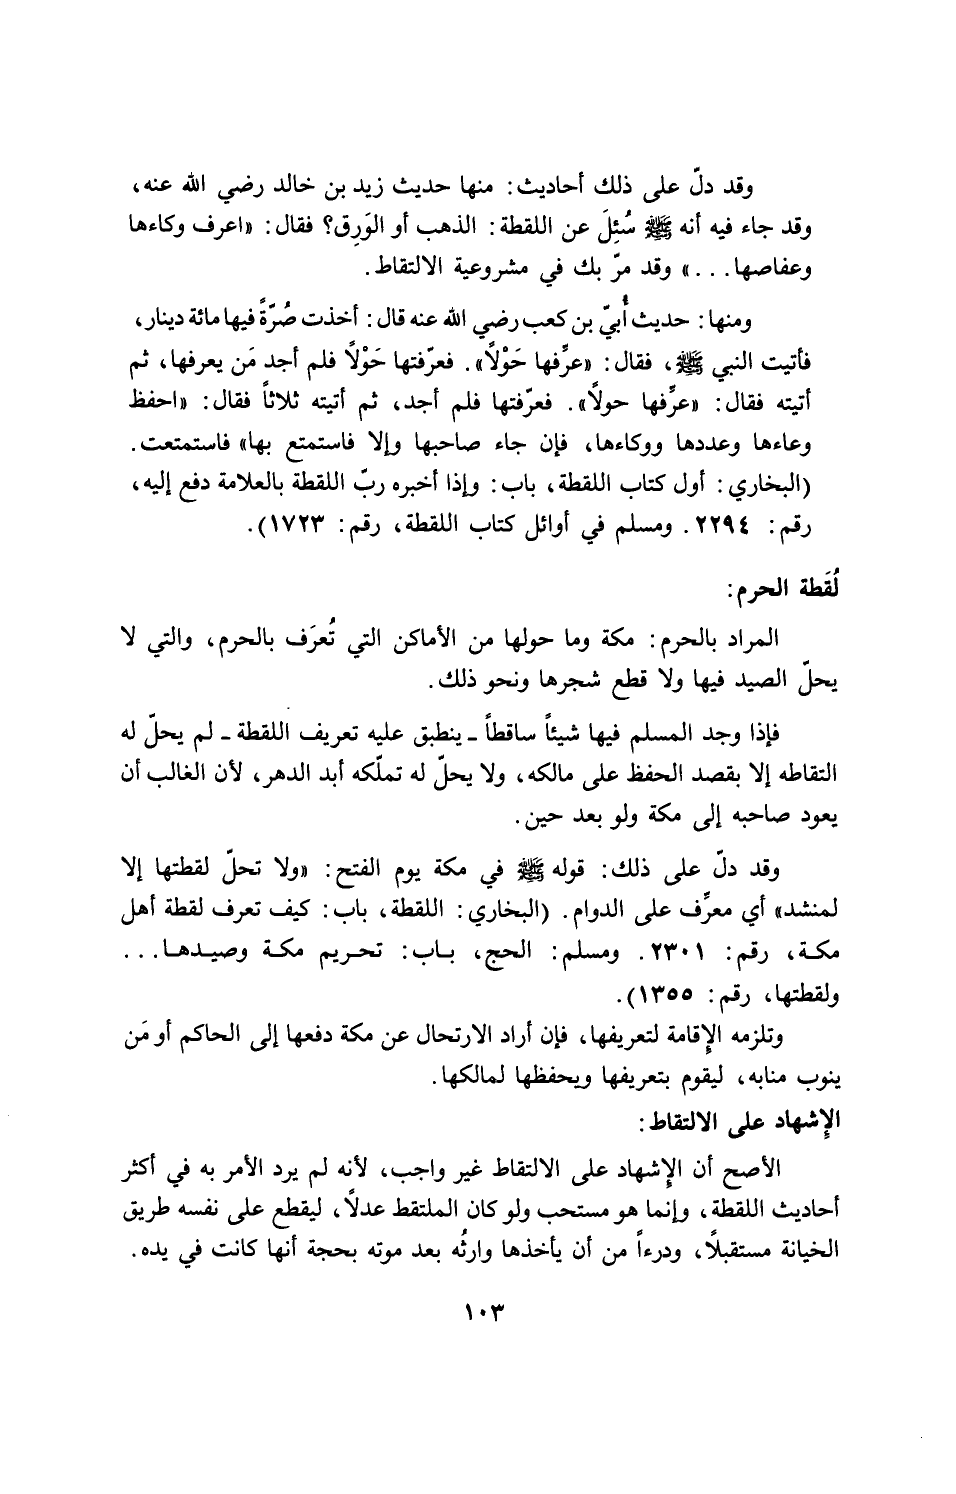 وقد دلّ على ذلك أحاديث: منها حديث زيد بن خالد رضي الله عنه،
وقد جاء فيه أنه ﷺ سُئِلَ عن اللقطة: الذهب أو الوَرِق؟ فقال: «اعرف وكاءها
وعفاصها...» وقد مرّ بك في مشروعية الالتقاط.
ومنها: حديث أُبيّ بن كعب رضي الله عنه قال: أخذت صُرّةً فيها مائة دينار،
فأتيت النبي ﷺ، فقال: «عرِّفها حَوْلاً». فعرّفتها حَوْلاً فلم أجد مَن يعرفها، ثم
أتيته فقال: «عرِّفها حولاً». فعرّفتها فلم أجد، ثم أتيته ثلاثاً فقال: «احفظ
وعاءها وعددها ووكاءها، فإن جاء صاحبها وإلا فاستمتع بها» فاستمتعت.
(البخاري: أول كتاب اللقطة، باب: وإذا أخبره ربّ اللقطة بالعلامة دفع إليه،
رقم: ٢٢٩٤. ومسلم في أوائل كتاب اللقطة، رقم: ١٧٢٣).
لُقَطة الحرم:
المراد بالحرم: مكة وما حولها من الأماكن التي تُعرَف بالحرم، والتي لا
يحلّ الصيد فيها ولا قطع شجرها ونحو ذلك.
فإذا وجد المسلم فيها شيئاً ساقطاً ـ ينطبق عليه تعريف اللقطة ـ لم يحلّ له
التقاطه إلا بقصد الحفظ على مالكه، ولا يحلّ له تملّكه أبد الدهر، لأن الغالب أن
يعود صاحبه إلى مكة ولو بعد حين.
وقد دلّ على ذلك: قوله ﷺ في مكة يوم الفتح: «ولا تحلّ لقطتها إلا
لمنشد» أي معرِّف على الدوام. (البخاري: اللقطة، باب: كيف تعرف لقطة أهل
مكة، رقم: ٢٣٠١. ومسلم: الحج، باب: تحريم مكة وصيدها...
ولقطتها، رقم: ١٣٥٥).
وتلزمه الإقامة لتعريفها، فإن أراد الارتحال عن مكة دفعها إلى الحاكم أو مَن
ينوب منابه، ليقوم بتعريفها ويحفظها لمالكها.
الإشهاد على الالتقاط:
الأصح أن الإشهاد على الالتقاط غير واجب، لأنه لم يرد الأمر به في أكثر
أحاديث اللقطة، وإنما هو مستحب ولو كان الملتقط عدلاً، ليقطع على نفسه طريق
الخيانة مستقبلاً، ودرءاً من أن يأخذها وارثُه بعد موته بحجة أنها كانت في يده.
١٠٣